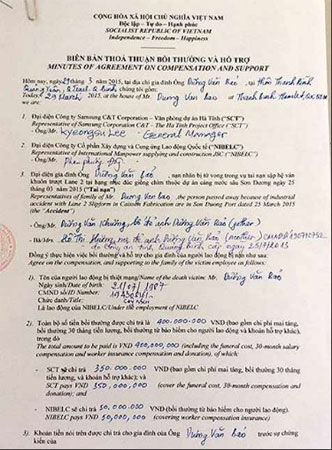 CỘNG HÒA XÃ HỘI CHỦ NGHĨA VIỆT NAM
Độc lập - Tự do - Hạnh phúc
SOCIALIST REPUBLIC OF VIETNAM
Independence – Freedom – Happiness
BIÊN BẢN THOẢ THUẬN BỒI THƯỜNG VÀ HỖ TRỢ
MINUTES OF AGREEMENT ON COMPENSATION AND SUPPORT
Hôm nay, ngày 29 tháng 3 năm 2015, tại địa chỉ gia đình Ông Dương Văn Bảo, tại thôn Thanh Bình
Quảng Xuân, Q. Trạch, Q. Bình, chúng tôi gồm:
Today, 29 March 2015, at the house of Mr. Duong Van Bao at Thanh Binh
1 Đại diện Công ty Samsung C&T Corporation – Văn phòng dự án Hà Tĩnh ("SCT")
Representative of Samsung Corporation C&T - The Ha Tinh Project Office ("SCT")
Kyeongsu Lee General Manager
2 Đại diện Công ty Cổ phần Xây dựng và Cung ứng Lao động Quốc tế ("NIBELC")
Representative of International Manpower supplying and construction JSC ("NIBELC")
Ông/Mr.
3 Đại diện gia đình Ông Dương Văn Bảo, nạn nhân bị tử vong trong vụ tai nạn sập bệ ván
khuôn trượt Lane 2 tại hạng mục đúc giếng chìm thuộc dự án cảng nước sâu Sơn Dương ngày 25
tháng 03 năm 2015 ("Tai nạn")
Representatives of family of Mr. Duong Van Bao, the person passed away because of industrial
accident with Lane 2 Slipform in Caisson Fabrication are in Son Duong Port dated 25 March 2015
(the "Accident")
- Ông/Mr. Dương Văn Khường, bố đẻ anh Dương Văn Bảo (father)
- Bà/Mrs. mẹ đẻ anh Dương Văn Bảo (mother)
Đồng ý thực hiện việc bồi thường và hỗ trợ cho gia đình của người lao động bị nạn như sau:
Agree on the compensation, and supporting to the family of the victim employee as follows:
1) Tên của người lao động bị thiệt mạng/Name of the death victim: Mr. Dương Văn Bảo
Ngày sinh/Date of birth: 21/07/1987
CMND số/ID Number:
Chức danh/Title:
Là lao động của NIBELC/Under the employment of NIBELC
2) Toàn bộ số tiền bồi thường được chi trả là 400.000.000 VND (bao gồm chi phí mai táng,
bồi thường 30 tháng tiền lương, bồi thường từ bảo hiểm cho người lao động và khoản hỗ trợ khác),
trong đó
The total amount to be paid is VND 400,000,000 (including the funeral cost, 30-month salary
compensation and worker insurance compensation and donation), of which:
- SCT sẽ chi trả 350.000.000 VND (bao gồm chi phí mai táng, bồi thường 30 tháng
tiền lương, và khoản hỗ trợ khác); và
SCT pays VND 350,000,000 (cover the funeral cost, 30-month compensation and
donation); and
- NIBELC sẽ chi trả 50.000.000 VND (bồi thường từ bảo hiểm cho người lao động).
NIBELC pays VND 50,000,000 (covering worker insurance compensation)
3) Khoản tiền nói trên được chi trả cho gia đình của Ông Dương Văn Bảo trước sự chứng
kiến của